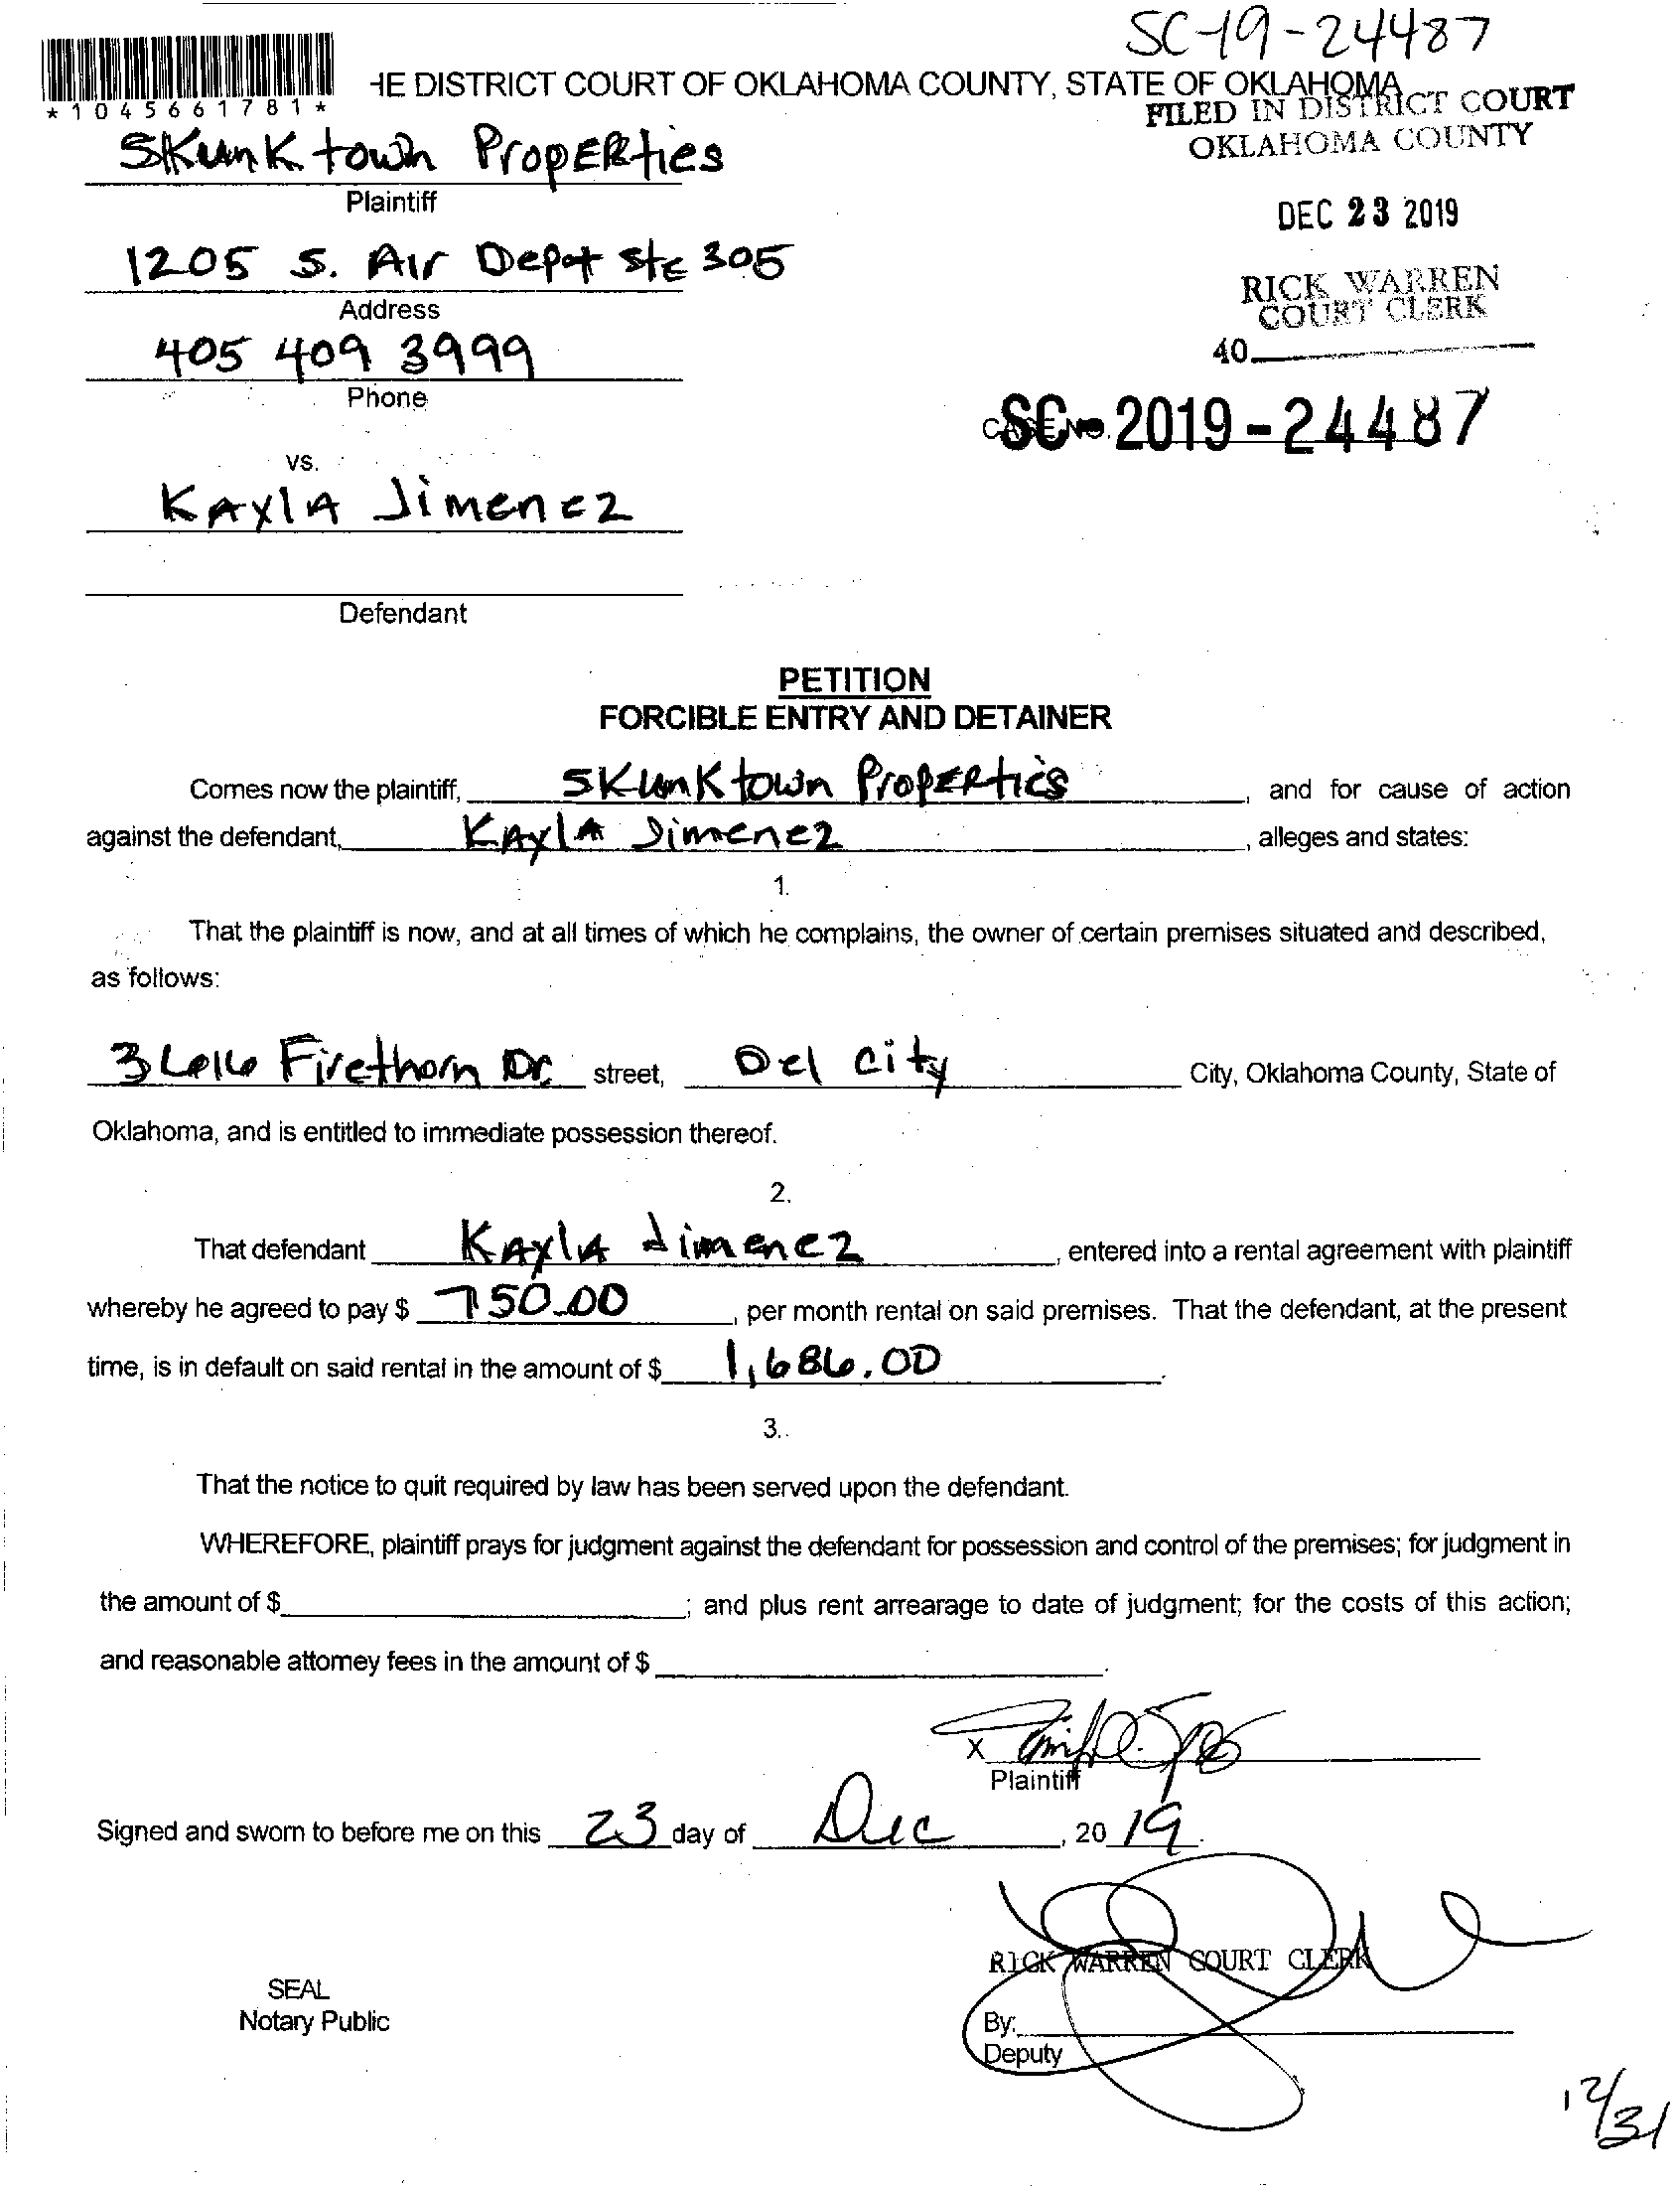 SC-19-24487
HE DISTRICT COURT OF OKLAHOMA COUNTY, STATE OF OKLAHOMA
*1045661781*
FILED IN DISTRICT COURT
OKLAHOMA COUNTY
SKunktown PropERties
Plaintiff
DEC 23 2019
1205 S. Air Depot Ste 305
Address
RICK WARREN
COURT CLERK
405 409 3999
40
Phone
CASE NO. SC-2019-24487
vs.
KAylA Jimenez
Defendant
PETITION
FORCIBLE ENTRY AND DETAINER
Comes now the plaintiff, SKunktown PropERties, and for cause of action
against the defendant, KAylA Jimenez, alleges and states:
1.
That the plaintiff is now, and at all times of which he complains, the owner of certain premises situated and described,
as follows:
3616 Firethorn Dr. street, Del city City, Oklahoma County, State of
Oklahoma, and is entitled to immediate possession thereof.
2.
That defendant KAylA Jimenez, entered into a rental agreement with plaintiff
whereby he agreed to pay $ 750.00, per month rental on said premises. That the defendant, at the present
time, is in default on said rental in the amount of $ 1,686.00.
3.
That the notice to quit required by law has been served upon the defendant.
WHEREFORE, plaintiff prays for judgment against the defendant for possession and control of the premises; for judgment in
the amount of $ ; and plus rent arrearage to date of judgment; for the costs of this action;
and reasonable attorney fees in the amount of $ .
X
Plaintiff
Signed and sworn to before me on this 23 day of Dec, 2019.
RICK WARREN COURT CLERK
SEAL
Notary Public
By:
Deputy
12/31